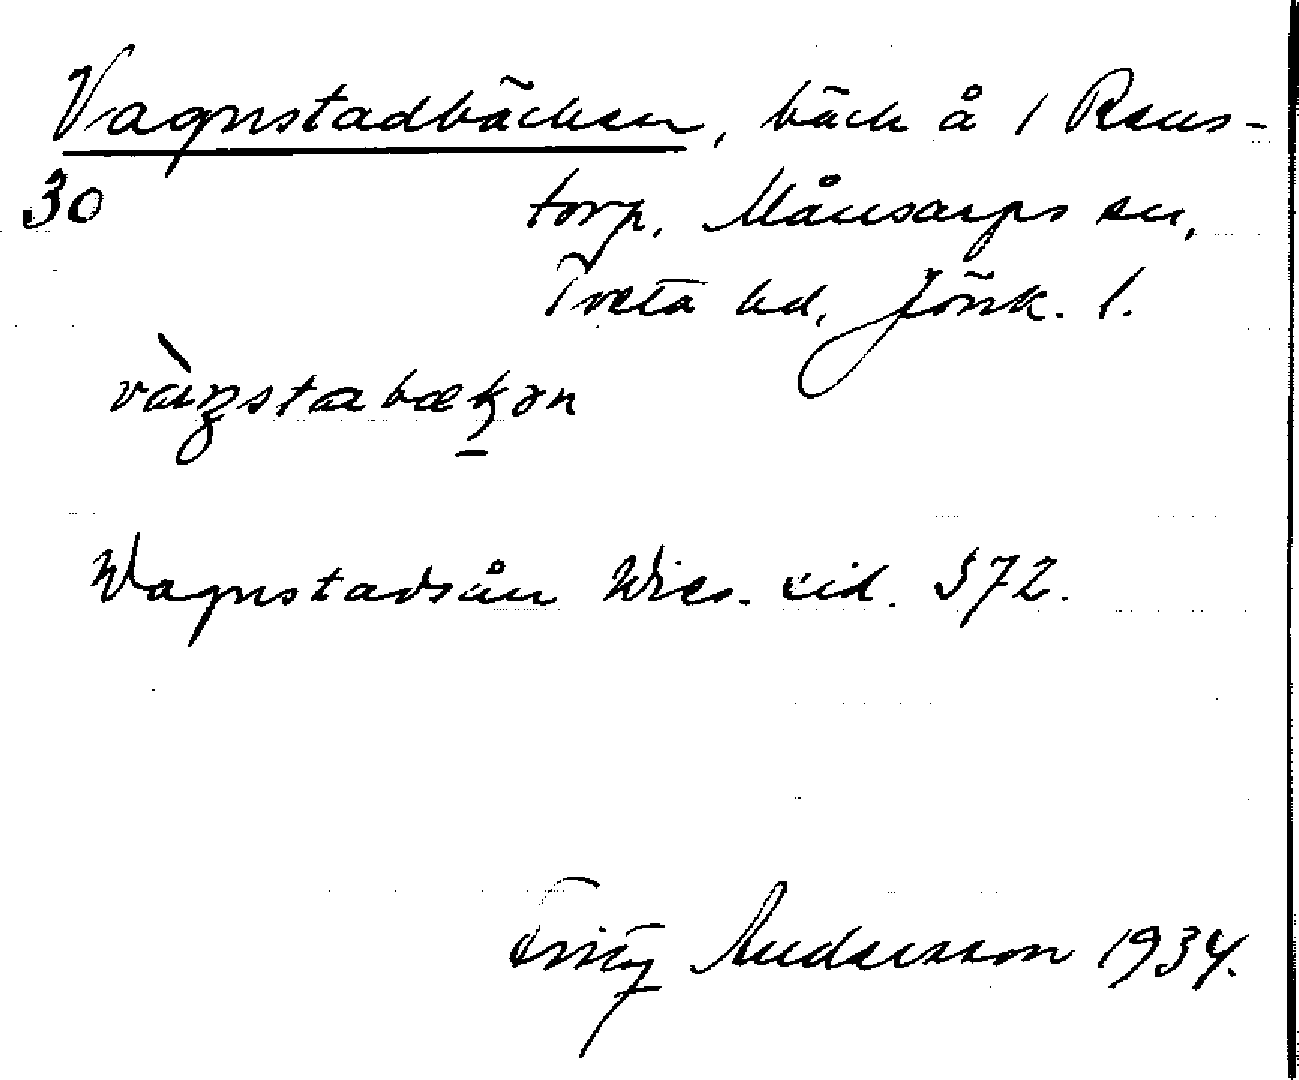 Vagnstadbäcken, bäck å 1 Rens-
30 torp, Månsarps sn,
Tveta hd, Jönk. l.
vàŋstabækən
Wagnstadsån Wies. sid. 572.
Fritz Andersson 1934.